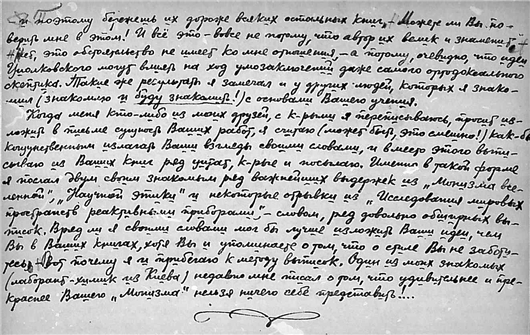 и поэтому бережешь их дороже всяких остальных книг. Можете ли Вы по-
верить мне в этом! И всё это – вовсе не потому, что автор их велик и знаменит –
нет, это обстоятельство не имеет ко мне отношения, – а потому, очевидно, что идеи
Циолковского могут влиять на ход умозаключений даже самого ортодоксального
скептика. Такие же результаты я замечал и у других людей, которых я знако-
мил (знакомлю и буду знакомить!) с основами Вашего учения.
Когда меня кто-либо из моих друзей, с к-рыми я переписываюсь, просит из-
ложить в письме сущность Ваших работ, я считаю (может быть, это смешно!) как-бы
кощунственным излагать Ваши взгляды своими словами, и вместо этого выпи-
сываю из Ваших книг ряд цитат, к-рые и посылаю. Именно в такой форме
я послал двум своим знакомым ряд важнейших выдержек из „Монизма все-
ленной", „Научной этики" и некоторые отрывки из „Исследования мировых
пространств реактивными приборами", – словом, ряд довольно обширных вы-
писок. Вряд ли я своими словами мог бы лучше изложить Ваши идеи, чем
Вы в Ваших книгах, хотя Вы и упоминаете о том, что о стиле Вы не заботи-
тесь. Вот почему я и прибегаю к методу выписок. Один из моих знакомых
(лаборант-химик из Киева) недавно мне писал о том, что удивительнее и пре-
краснее Вашего „Монизма" нельзя ничего себе представить....